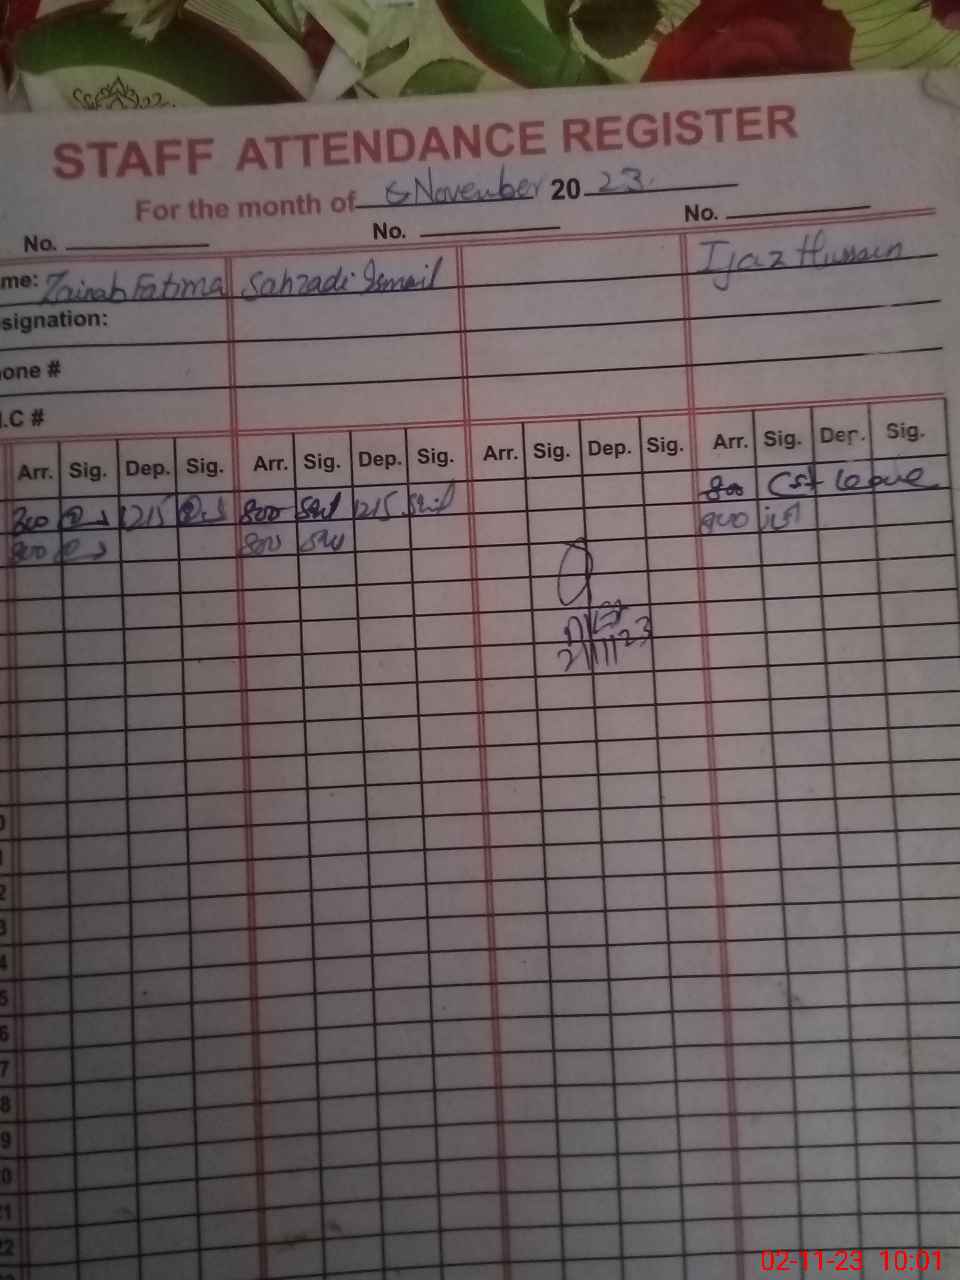 STAFF ATTENDANCE REGISTER
For the month of November 20 23.
No. No. No.
me: Zainab Fatima Sahzadi Ismail Ijaz Hussain
signation:
one #
.C #
Arr. Sig. Dep. Sig. Arr. Sig. Dep. Sig. Arr. Sig. Dep. Sig. Arr. Sig. Dep. Sig.
800 1215 800 1215 800 leave
800 800 800
2/11/23
0
1
2
3
4
5
6
7
8
9
0
21
22
02-11-23 10:01